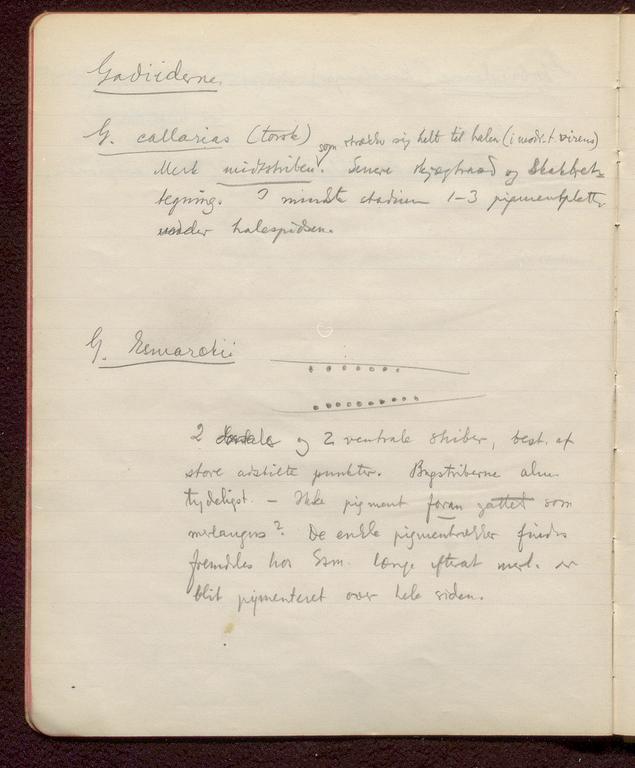 Gadiiderne.
G. callarias (torsk)
som strækker sig helt til halen (i mods. t. virens)
Merk midtstriben. Senere skjægtraad og Skakbret-
tegning. I mindste stadium 1-3 pigmentpletter
under halespidsen.
G. Esmarckii
2 dorsale og 2 ventrale striber, best. af
store adskilte punkter. Bugstriberne alm.
tydeligst. - Ikke pigment foran gattet som
merlangus? De enkle pigmentrækker findes
fremdeles hos Esm. længe efterat merl. er
blit pigmenteret over hele siden.